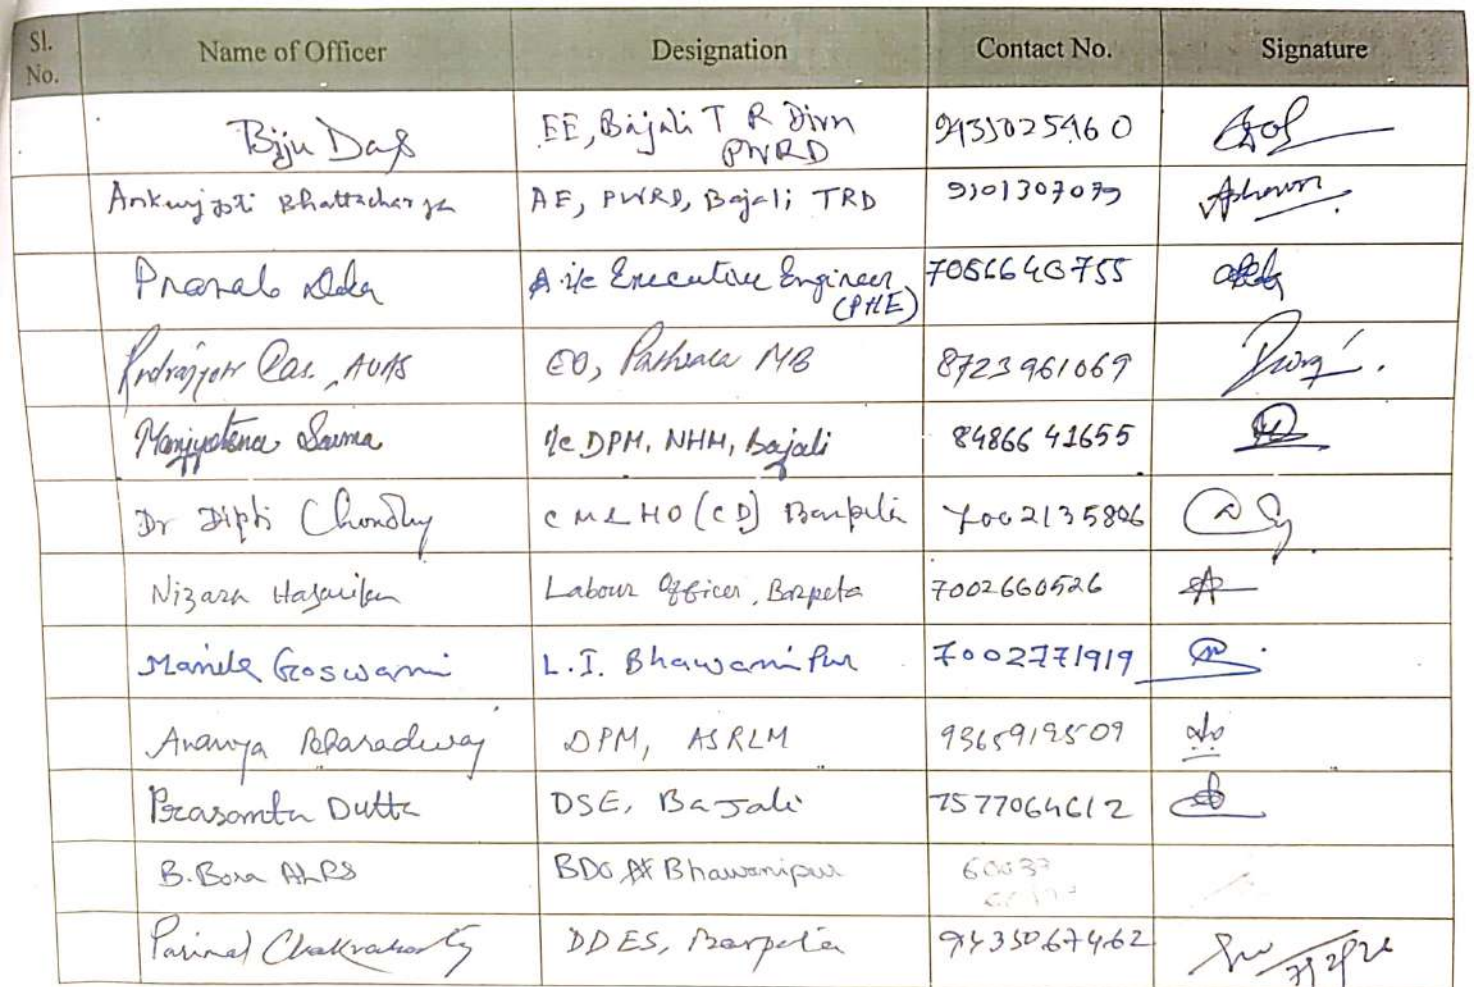 Sl. No. Name of Officer Designation Contact No. Signature
Biju Das EE, Bajali T R Divn PWRD 9435025460
Ankurjyoti Bhattacharya AE, PWRD, Bajali TRD 9101307079
Pranab Deka i/c Executive Engineer (PHE)
Das, AUAS EO, MB 8723961069
Sarma i/c DPM, NHM, Bajali 8486641655
Dr Dipti Choudhury (CD) Barpeta 7002135806
Nizara Hazarika Labour Officer, Barpeta 7002660526
Goswami L.I. Bhawanipur 7002771919
Ananya Bharadwaj DPM, ASRLM
Prasanta Dutta DSE, Bajali 7577064612
B. Bora BDO Bhawanipur
Chakraborty DDES, Barpeta 9435067462